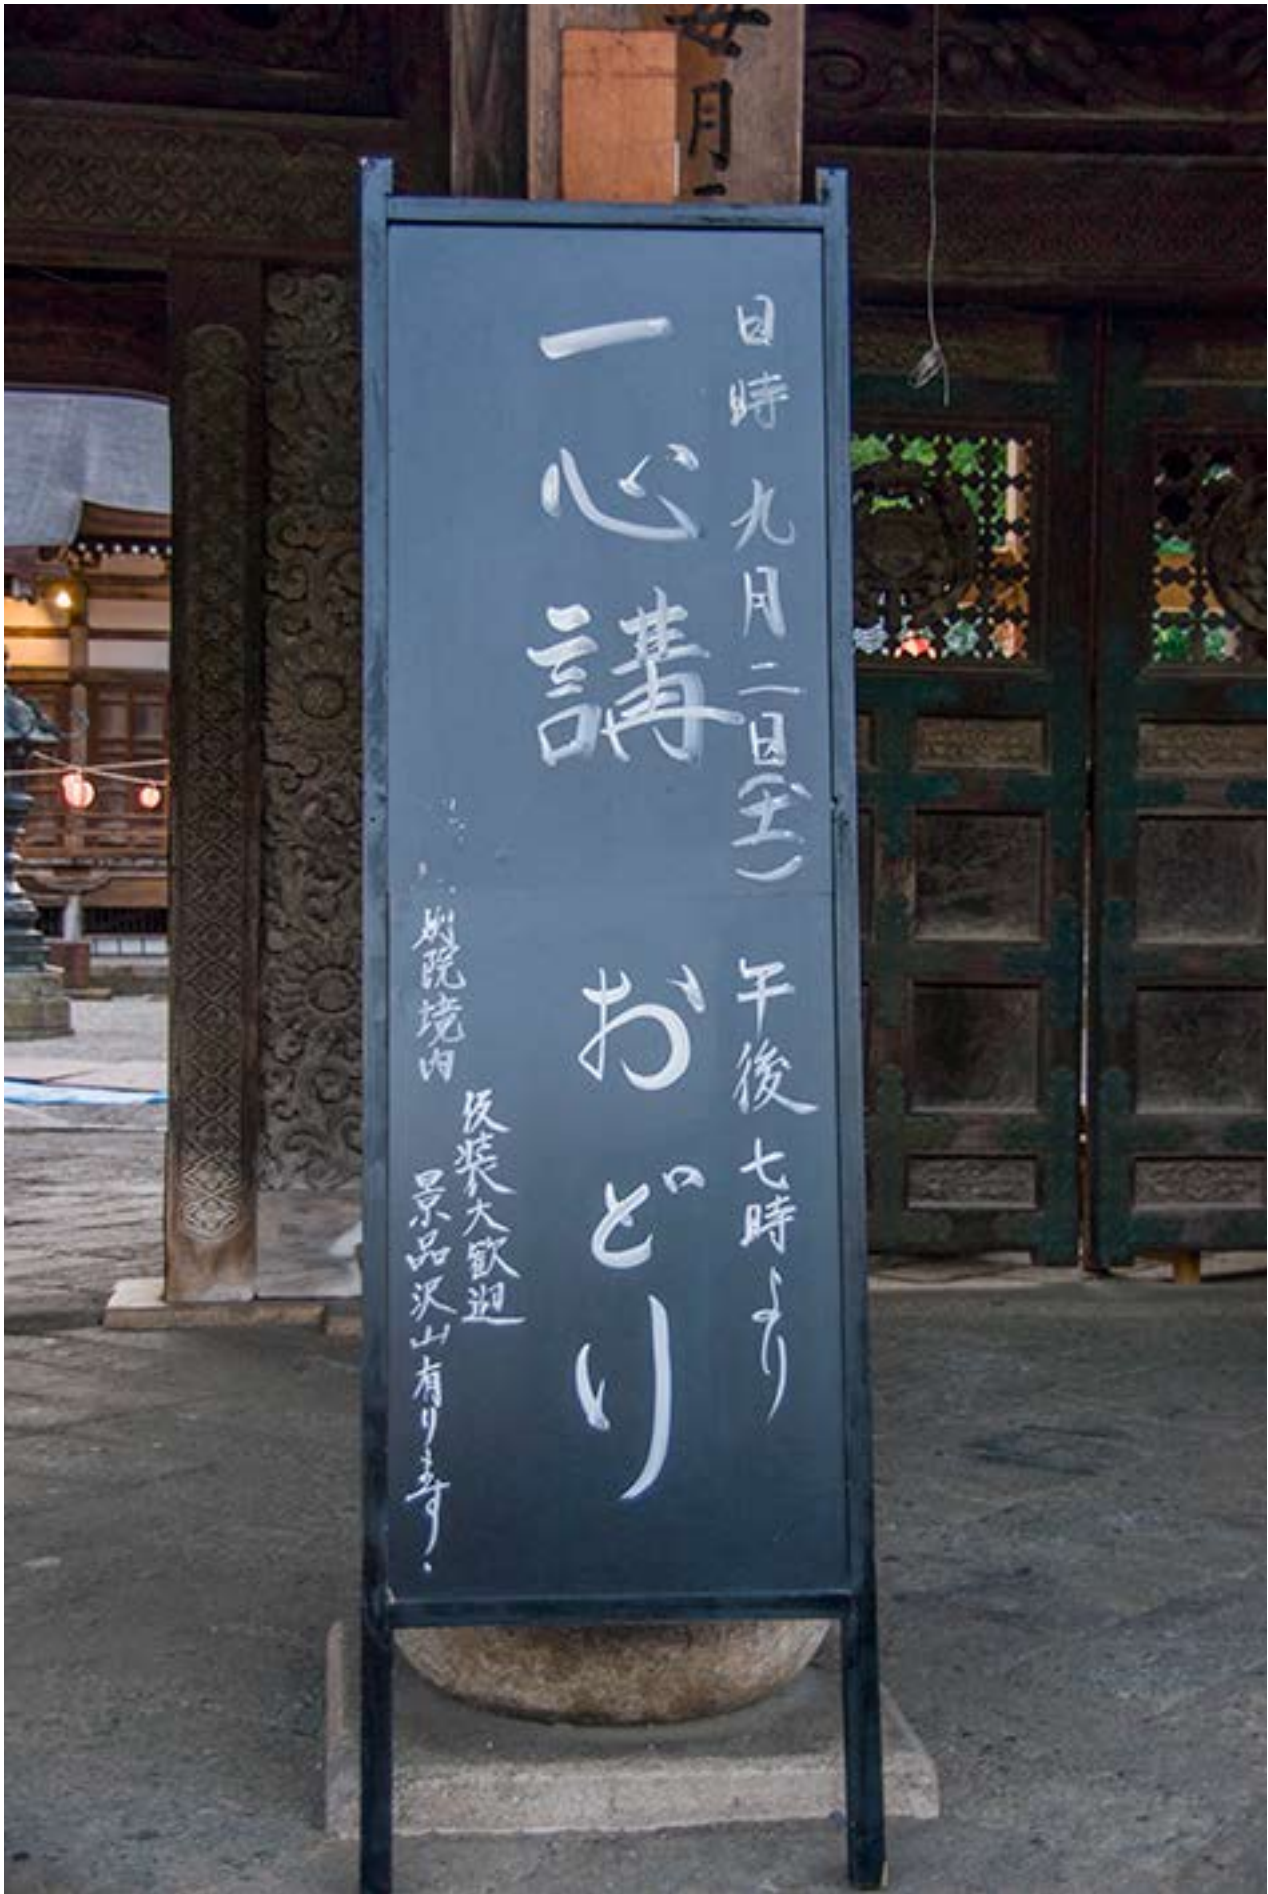 毎月二
日時 九月二日(土) 午後七時より
一心講 おどり
仮装大歓迎
別院境内
景品沢山有ります.